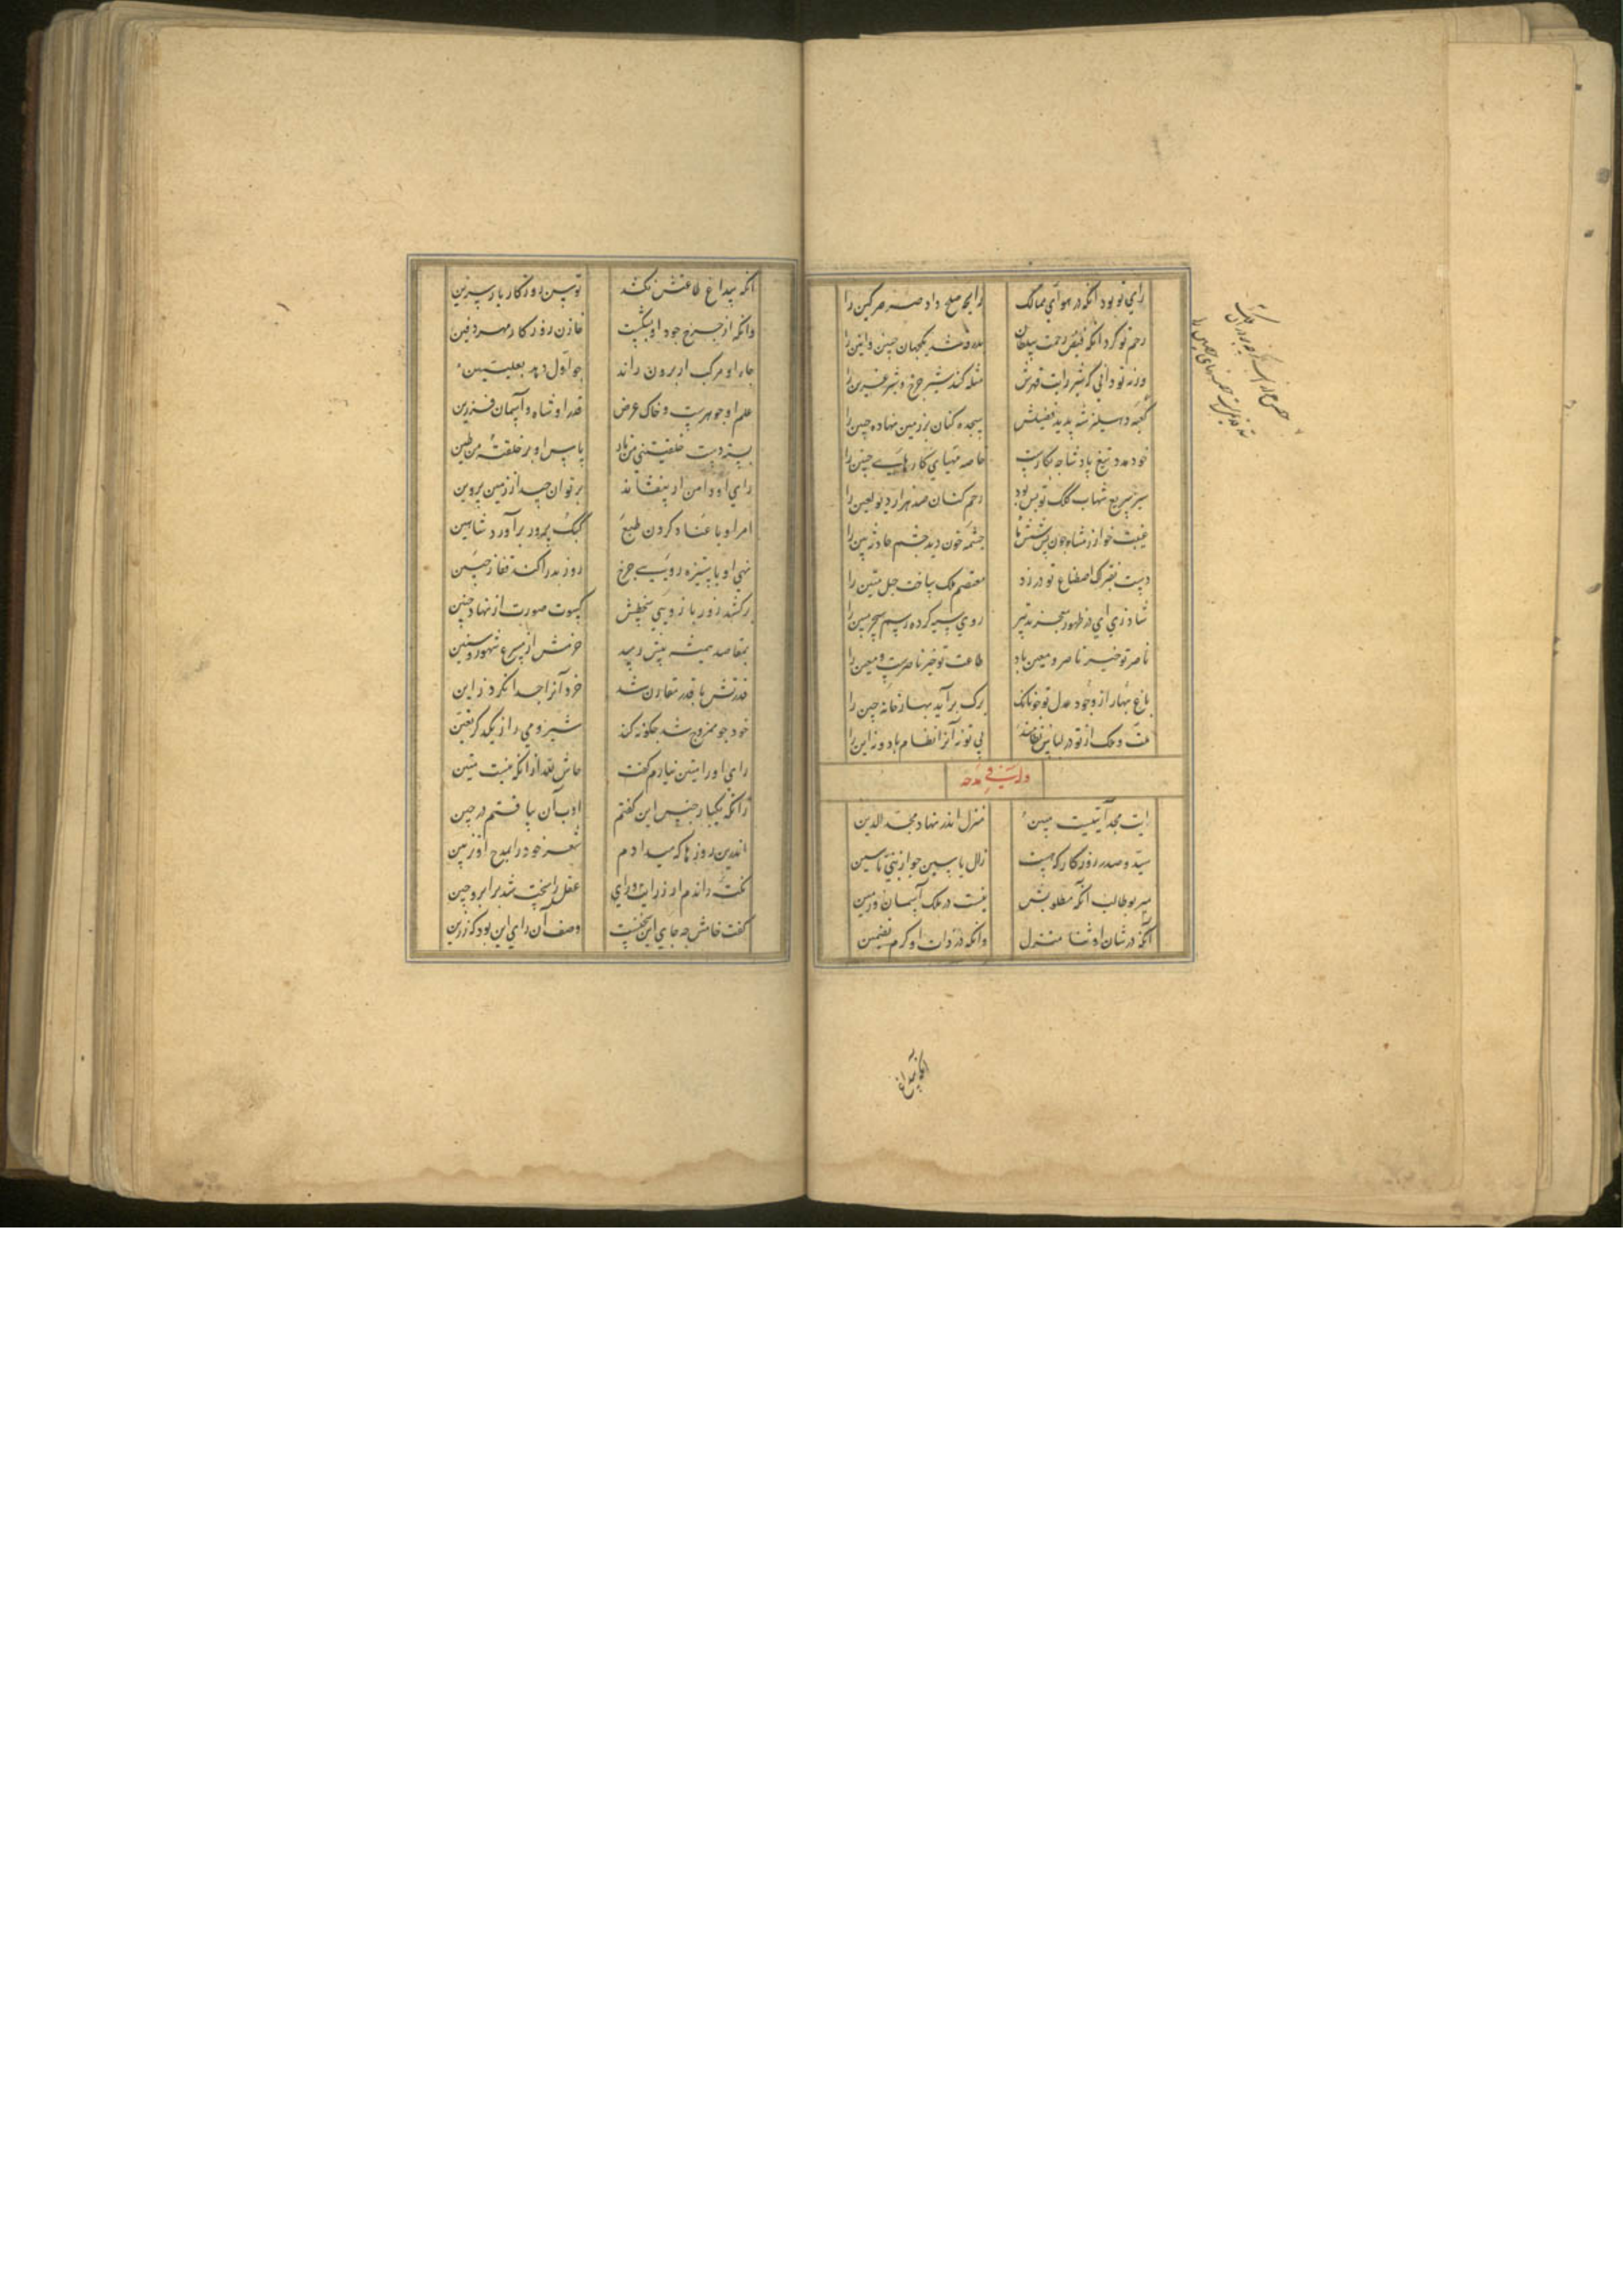 رای تو بود آنکه در هوای ممالک رایحه صلح داد صرصر کین را
رحم تو کرد آنکه فیض رحمت سلطان بدرقه شد یکجهان حنین و انین را
ورنه تو دانی که شیر رایت قهرش مثله کند شیر چرخ و شیر عرین را
کعبه دهلیز شه پدید فضیلتش سجده کنان بر زمین نهاده جبین را
خود مدد تیغ پادشا چه بکارست خاصه مهیای کارهای چنین را
سیر سریع شهاب کلک تو بس بود رجم کنان صد هزار دیو لعین را
غیبت خوارزمشاه چون پس شش ماه چشمه خون دید چشم حادثه بین را
دست بفتراک اصطناع تو در زد معتصم ملک ساخت حبل متین را
شاد زی ای در ظهور معجز تدبیر روی سیه کرده رسم سحر مبین را
ناصر تو خیر ناصر و معین باد طاعت تو خیر ناصرست و معین را
باغ بهار از وجود عدل تو چونانک برگ برآید بهارخانه چین را
ملت و ملک از تو در لباس نظامند بی تو نه آنرا نظام باد و نه این را
وله ایضا فی مدحه
آیت مجد آیتیست مبین منزل اندر نهاد مجدالدین
سید و صدر روزگار که هست زال یاسین چو از نبی یاسین
میر بوطالب آنکه مطلوبش نیست در ملک آسمان و زمین
آنکه در شان او ثنا منزل وانکه در ذات او کرم تضمین
آنکه بیداغ
آنکه بیداغ طاعتش نکشد توسن روزگار بار سرین
وانکه از چرخ جود او بشکست خازن روزگار مهر دفین
جاه او مرکب ار برون راند چو اول دمد بعلیین
علم او جوهرست و خاک عرض قدر او شاه و آسمان فرزین
بسته دست خلقتنی من نار پاس او بر خلقته من طین
رای او دامن ار بیفشاند بر توان چید از زمین پروین
امر او با عناد کردن طبع کبک پرور برآورد شاهین
نهی او با ستیزه روی چرخ روز بد را کند قفا ز جبین
برکشد زور بازوی سخطش کسوت صورت از نهاد جنین
بمقاصد همیشه پیش رسد عزمش از مسرع شهور و سنین
قدرتش با قدر مقارن شد خرد آنرا جدا نکرد ز این
خود چو ممزوج شد چگونه کند شیر و می را ز یکدگر تعیین
رای او را متین نیارم گفت حاش لله از آنکه نیست متین
زانکه یکبار جنس این گفتم ادب آن بیافتم در حین
اندرین روزها که میدادم شعر خود را بمدح او تزیین
نکته راندم از رزانت رای عقل را سخت شد برابرو چین
گفت خامش چه جای این سخنست وصف آن رای این بود که رزین